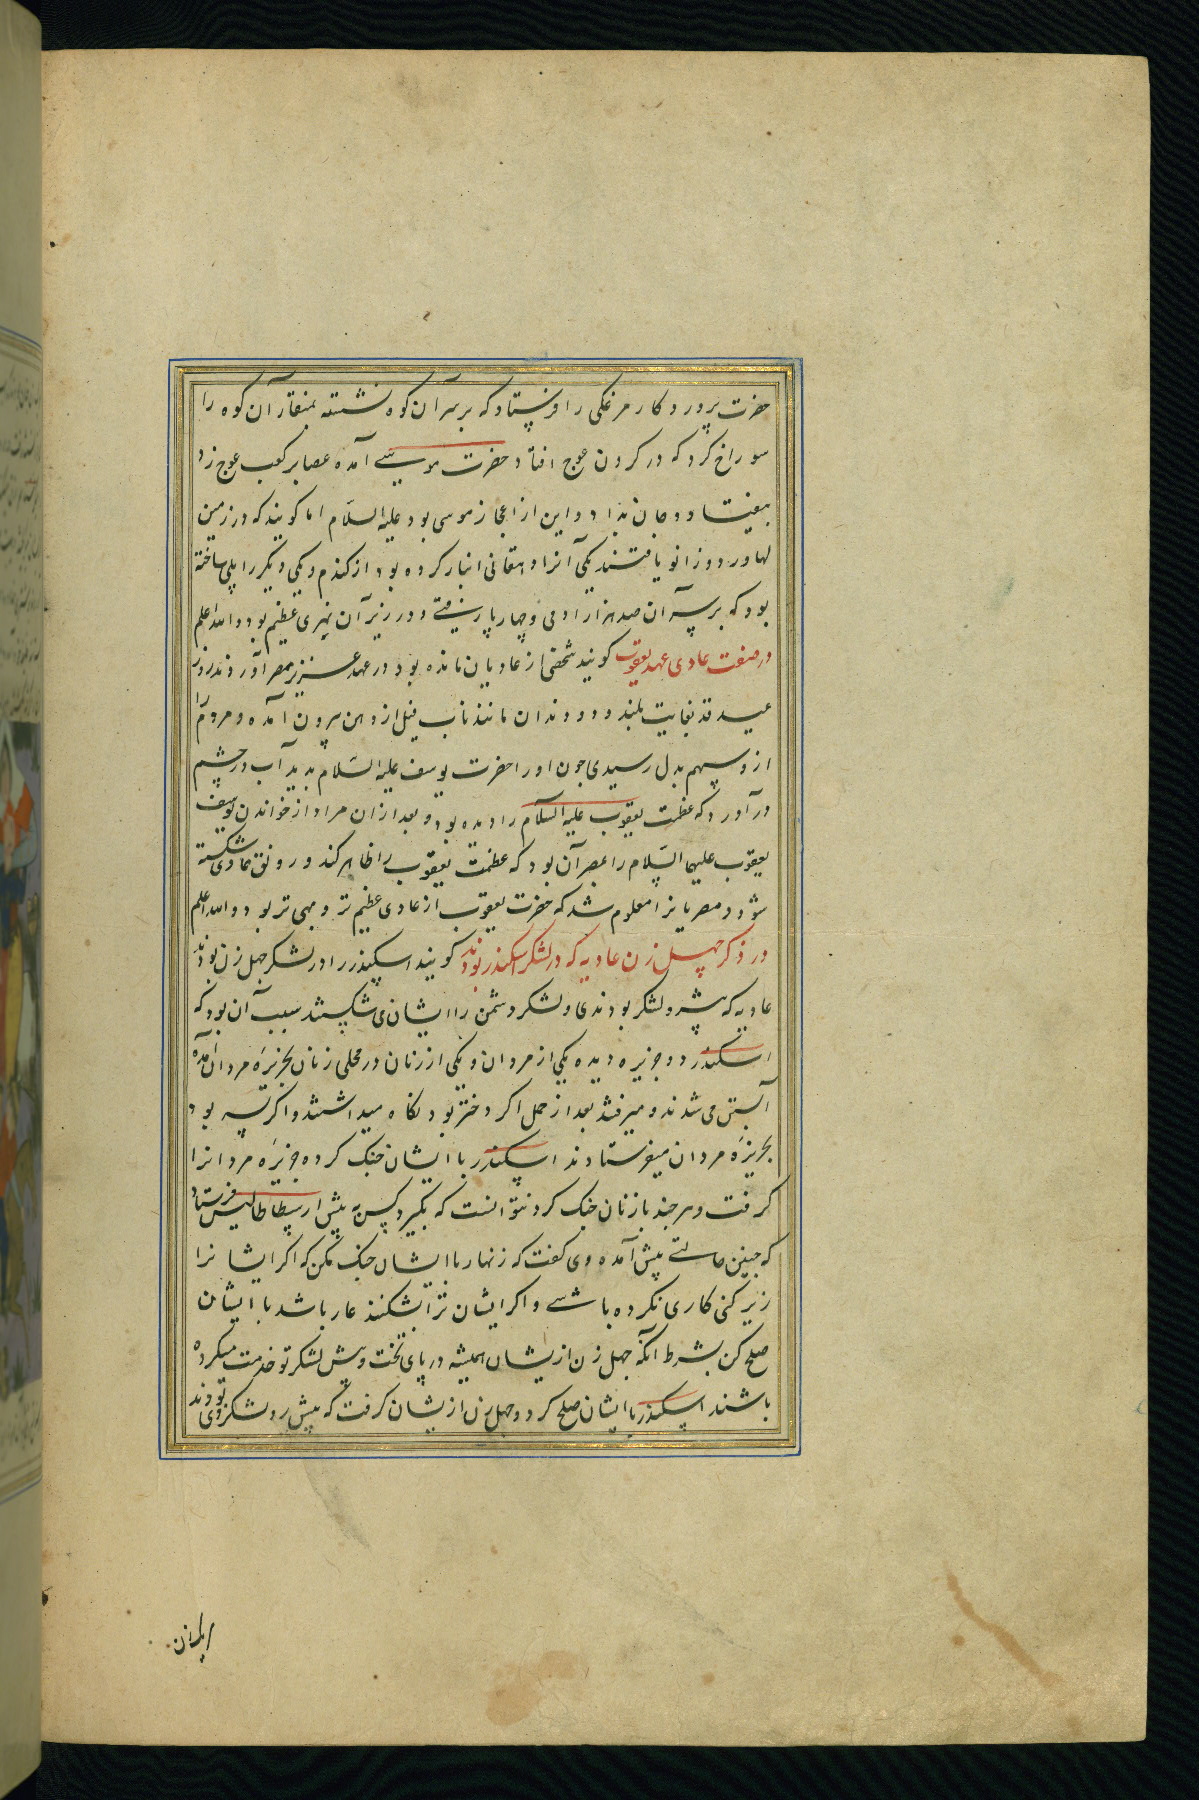 حضرت پروردکار مرغکی را فرستاد که بر سر آن کوه نشسته بمنقار آن کوه را
سوراخ کرد که در کردن عوج افتاد حضرت موسی آمده عصا بر کعب عوج زد
بیفتاد و جان بداد و این از اعجاز موسی بود علیه السّلام اما کویند که در زمین
لهاور دو زانو یافتند یکی آنرا دهقانی انبار کرده بود از کندم و یکی دیکر را پلی ساخته
بود که بر سر آن صد هزار ادمی و چهارپا رفتی و در زیر آن نهری عظیم بود والله اعلم
در صفت عادی عهد یعقوب کویند شخصی از عادیان مانده بود در عهد عزیز بمصر آوردند روز
عید قد بغایت بلند و دو دندان مانند ناب فیل از دهن بیرون آمده و مردم را
از وسهم بدل رسیدی جون او را حضرت یوسف علیه السّلام بدید آب در چشم
در آورد که عظمت یعقوب علیه السّلام را دیده بود و بعد از ان مراد از خواندن یوسف
یعقوب علیهما السّلام را بمصر آن بود که عظمت یعقوب را ظاهر کند و رونق عادی شکسته
شود و مصریانرا معلوم شد که حضرت یعقوب از عادی عظیم تر و مهی تر بود والله اعلم
در ذکر چهل زن عادیه که در لشکر اسکندر بودند کویند اسکندر را در لشکر جهل زن بودند
عادیه که پیشرو لشکر بودندی و لشکر دشمن را ایشان می شکستند سبب آن بود که
اسکندر دو جزیره دیده یکی از مردان و یکی از زنان در محلی زنان بجزیرهٔ مردان آمده
آبستن می شدند و میرفتند بعد از حمل اکر دختر بود نکاه میداشتند و اکر پسر بود
بجزیرهٔ مردان میفرستادند اسکندر با ایشان جنک کرده جزیرهٔ مردانرا
کرفت و هر جند با زنان جنک کرد نتوانست که بکیرد کس به پیش ارسطاطالیس فرستاد
که جنین حالتی پیش آمده وی کفت که زنهار با ایشان جنک مکن که اکر ایشانرا
زیر کنی کاری نکرده باشی و اکر ایشان ترا بشکنند عار باشد با ایشان
صلح کن بشرط آنکه جهل زن از یشان همیشه در پای تخت و پیش لشکر تو خدمت میکرده
باشند اسکندر با ایشان صلح کرد و جهل زن از یشان کرفت که پیش رو لشکر وی بودند